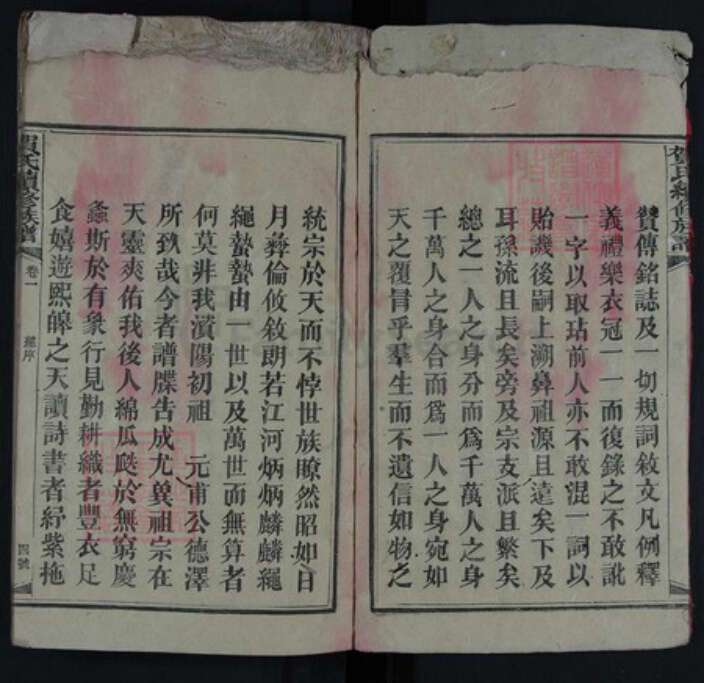 賀氏續修族譜
贊傳銘誌及一切規詞敘文凡例釋
義禮樂衣冠一一而復錄之不敢訛
一字以取玷前人亦不敢混一詞以
貽譏後嗣上溯鼻祖源且遠矣下及
耳孫流且長矣旁及宗支派且繁矣
總之一人之身分而爲千萬人之身
千萬人之身合而爲一人之身宛如
天之覆冒乎羣生而不遺信如物之
統宗於天而不悖世族瞭然昭如日
月彝倫攸敘朗若江河炳炳麟麟繩
繩蟄蟄由一世以及萬世而無算者
何莫非我濱陽初祖 元甫公德澤
所致哉今者譜牒告成尤兾祖宗在
天靈爽佑我後人綿瓜瓞於無窮慶
螽斯於有象行見勤耕織者豐衣足
食嬉遊熙皞之天讀詩書者紆紫拖
賀氏續修族譜
卷一
序
四號